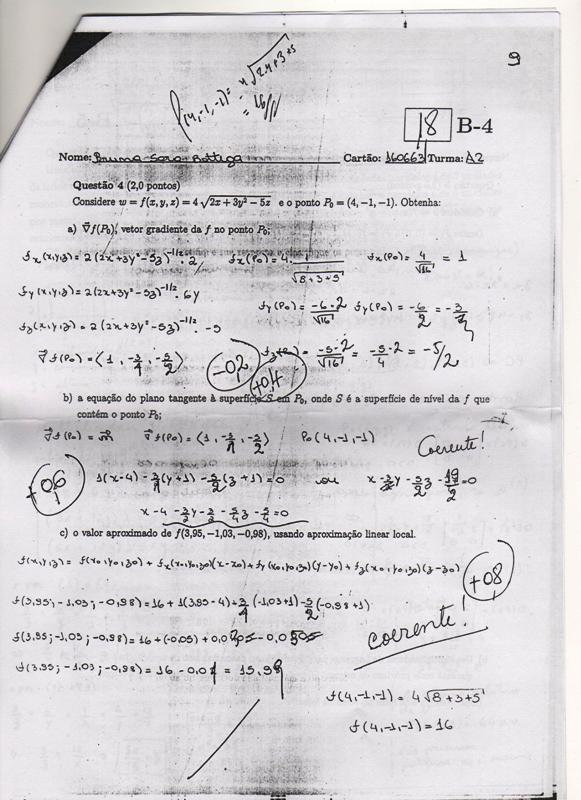 9
f(4,-1,-1) = 4√2x+3+5
= 16
18 B-4
Nome: Cartão: 160663 Turma: A2
Questão 4 (2,0 pontos)
Considere w = f(x, y, z) = 4√2x + 3y² − 5z e o ponto P₀ = (4, −1, −1). Obtenha:
a) ∇f(P₀), vetor gradiente da f no ponto P₀;
fx(x,y,z) = 2(2x+3y²-5z)^-1/2 . 2 fx(P0) = 4 . 1/√8+3+5 fx(P0) = 4/√16 = 1
fy(x,y,z) = 2(2x+3y²-5z)^-1/2 . 6y fy(P0) = -6.2/√16 fy(P0) = -6/2 = -3
fz(x,y,z) = 2(2x+3y²-5z)^-1/2 . -5 = -5.2/√16 = -5.2/4 = -5/2
∇f(P0) = (1, -3/4, -5/2) -0,2 +0,4
b) a equação do plano tangente à superfície S em P₀, onde S é a superfície de nível da f que
contém o ponto P₀;
∇f(P0) = n ∇f(P0) = (1, -3/4, -5/2) P0(4,-1,-1) Coerente!
+0,6 1(x-4) - (y+1) - 5/2(z+1) = 0 ou =0
x - 4 =0
c) o valor aproximado de f(3,95, −1,03, −0,98), usando aproximação linear local.
f(x,y,z) = f(x0,y0,z0) + fx(x0,y0,z0)(x-x0) + fy(x0,y0,z0)(y-y0) + fz(x0,y0,z0)(z-z0)
+0,8
f(3,95; -1,03; -0,98) = 16 + 1(3,95-4) + 3/4(-1,03+1) - 5/2(-0,98+1)
coerente!
f(3,95; -1,03; -0,98) = 16 + (-0,05) + 0,0 - 0,050
f(3,95; -1,03; -0,98) = 16 - 0,0 = 15,9
f(4,-1,-1) = 4√8+3+5
f(4,-1,-1) = 16